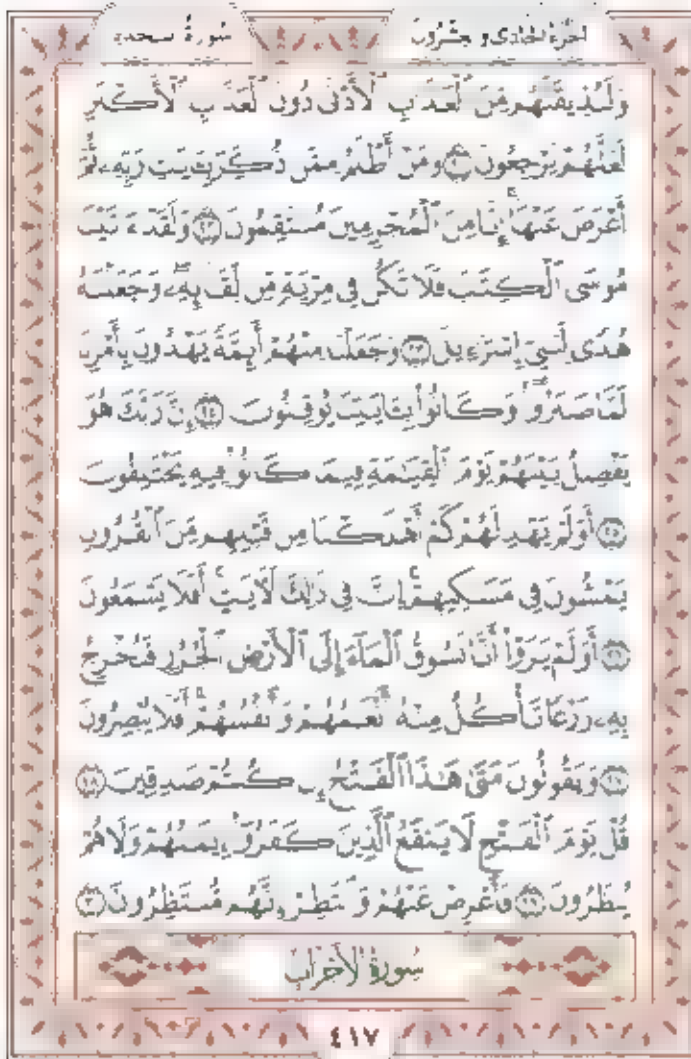 سُورَةُ السَّجْدَةِ
الجُزْءُ الحَادِي وَالعِشْرُونَ
وَلَنُذِيقَنَّهُم مِّنَ ٱلْعَذَابِ ٱلْأَدْنَىٰ دُونَ ٱلْعَذَابِ ٱلْأَكْبَرِ
لَعَلَّهُمْ يَرْجِعُونَ ٢١ وَمَنْ أَظْلَمُ مِمَّن ذُكِّرَ بِـَٔايَٰتِ رَبِّهِۦ ثُمَّ
أَعْرَضَ عَنْهَآ ۚ إِنَّا مِنَ ٱلْمُجْرِمِينَ مُنتَقِمُونَ ٢٢ وَلَقَدْ ءَاتَيْنَا
مُوسَى ٱلْكِتَٰبَ فَلَا تَكُن فِى مِرْيَةٍ مِّن لِّقَآئِهِۦ ۖ وَجَعَلْنَٰهُ
هُدًى لِّبَنِىٓ إِسْرَٰٓءِيلَ ٢٣ وَجَعَلْنَا مِنْهُمْ أَئِمَّةً يَهْدُونَ بِأَمْرِنَا
لَمَّا صَبَرُوا۟ ۖ وَكَانُوا۟ بِـَٔايَٰتِنَا يُوقِنُونَ ٢٤ إِنَّ رَبَّكَ هُوَ
يَفْصِلُ بَيْنَهُمْ يَوْمَ ٱلْقِيَٰمَةِ فِيمَا كَانُوا۟ فِيهِ يَخْتَلِفُونَ
٢٥ أَوَلَمْ يَهْدِ لَهُمْ كَمْ أَهْلَكْنَا مِن قَبْلِهِم مِّنَ ٱلْقُرُونِ
يَمْشُونَ فِى مَسَٰكِنِهِمْ ۚ إِنَّ فِى ذَٰلِكَ لَءَايَٰتٍ ۖ أَفَلَا يَسْمَعُونَ
٢٦ أَوَلَمْ يَرَوْا۟ أَنَّا نَسُوقُ ٱلْمَآءَ إِلَى ٱلْأَرْضِ ٱلْجُرُزِ فَنُخْرِجُ
بِهِۦ زَرْعًا تَأْكُلُ مِنْهُ أَنْعَٰمُهُمْ وَأَنفُسُهُمْ ۖ أَفَلَا يُبْصِرُونَ
٢٧ وَيَقُولُونَ مَتَىٰ هَٰذَا ٱلْفَتْحُ إِن كُنتُمْ صَٰدِقِينَ ٢٨
قُلْ يَوْمَ ٱلْفَتْحِ لَا يَنفَعُ ٱلَّذِينَ كَفَرُوٓا۟ إِيمَٰنُهُمْ وَلَا هُمْ
يُنظَرُونَ ٢٩ فَأَعْرِضْ عَنْهُمْ وَٱنتَظِرْ إِنَّهُم مُّنتَظِرُونَ ٣٠
سُورَةُ الأَحْزَابِ
٤١٧